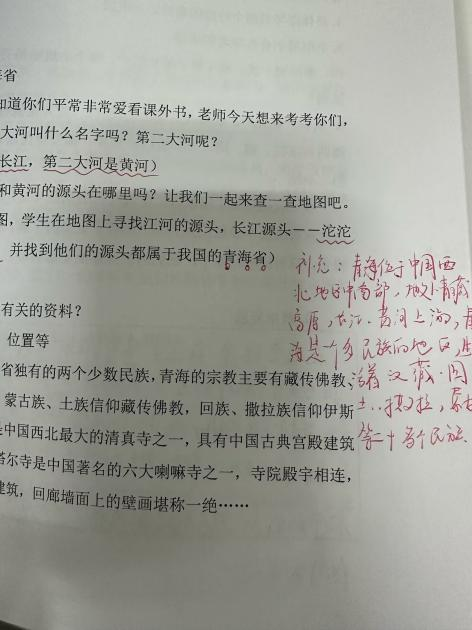 海省
知道你们平常非常爱看课外书，老师今天想来考考你们，
大河叫什么名字吗？第二大河呢？
长江，第二大河是黄河）
和黄河的源头在哪里吗？让我们一起来查一查地图吧。
图，学生在地图上寻找江河的源头，长江源头——沱沱
并找到他们的源头都属于我国的青海省）
有关的资料？
位置等
省独有的两个少数民族，青海的宗教主要有藏传佛教、
蒙古族、土族信仰藏传佛教，回族、撒拉族信仰伊斯
是中国西北最大的清真寺之一，具有中国古典宫殿建筑
塔尔寺是中国著名的六大喇嘛寺之一，寺院殿宇相连，
建筑，回廊墙面上的壁画堪称一绝……
补充：青海位于中国西
北地区中南部，地处青藏
高原，长江、黄河上游，青
海是个多民族的地区，生
活着汉、藏、回
土、撒拉，蒙古
等十多个民族